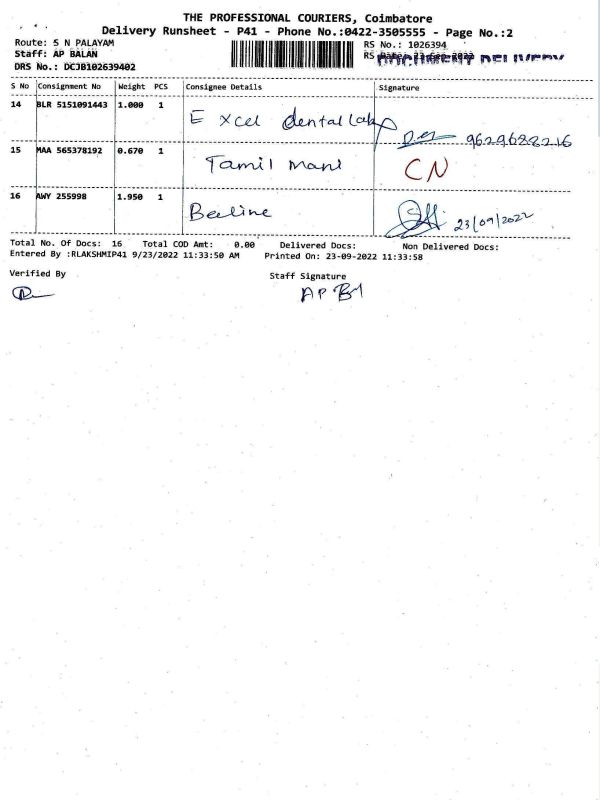 THE PROFESSIONAL COURIERS, Coimbatore
Delivery Runsheet - P41 - Phone No.:0422-3505555 - Page No.:2
Route: S N PALAYAM
RS No.: 1026394
Staff: AP BALAN
RS Date: 23-Sep-2022
DRS No.: DCJB102639402
DELIVERY
S No Consignment No Weight PCS Consignee Details Signature
14 BLR 5151091443 1.000 1 Excel dental Lab
9629688216
15 MAA 565378192 0.670 1 Tamil mani CN
16 AWY 255998 1.950 1 Beeline 23/09/2022
Total No. Of Docs: 16 Total COD Amt: 0.00 Delivered Docs: Non Delivered Docs:
Entered By :RLAKSHMIP41 9/23/2022 11:33:50 AM Printed On: 23-09-2022 11:33:58
Verified By Staff Signature
AP